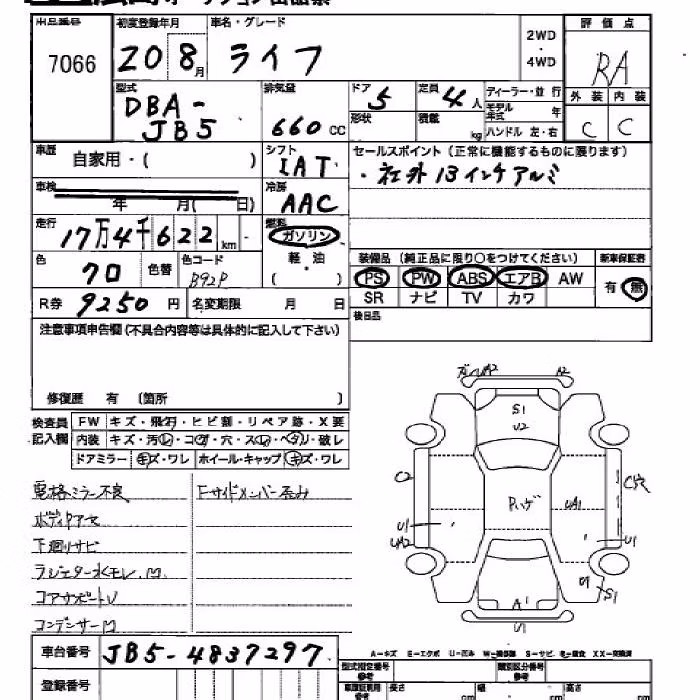 出品番号 初度登録年月 車名・グレード 評価点
7066 20 8月 ライフ 2WD・4WD RA
外装 内装
C C
型式 排気量 ドア 定員 ディーラー・並行
DBA- 5 4人 モデル年式 年
JB5 660cc 形状 積載 kg ハンドル 左・右
車歴 シフト セールスポイント (正常に機能するものに限ります)
自家用・( ) IAT ・社外13インチアルミ
車検 冷房
年 月( 日) AAC
走行 燃料
17万4千622km ガソリン
軽・油
( )
装備品 (純正品に限り○をつけてください) 新車保証書
PS PW ABS エアB AW 有・無
SR ナビ TV カワ
色 色替 色コード
70 B92P
R券 9250円 名変期限 月 日
後日品
注意事項申告欄(不具合内容等は具体的に記入して下さい)
修復歴 有 〔箇所 〕
検査員記入欄
FW キズ・飛石・ヒビ割・リペア跡・X要
内装 キズ・汚レ・コゲ・穴・スレ・ヘタリ・破レ
ドアミラー キズ・ワレ ホイール・キャップ キズ・ワレ
電格ミラー不良 Fサイドメンバー歪み
ボディPアセ
下廻りサビ
ラジエター水モレ、凹
コアサポートU
コンデンサー凹
A2 A2
S1
U2
C2 Pハゲ UA1 C穴
U1 U1
UA2
U1 S1
A1
U1
A=キズ E=エクボ U=凹み S=サビ XX=交換済
車台番号 JB5-4837297
登録番号
型式指定番号 参考 類別区分番号 参考
長さ cm 幅 cm 高さ cm